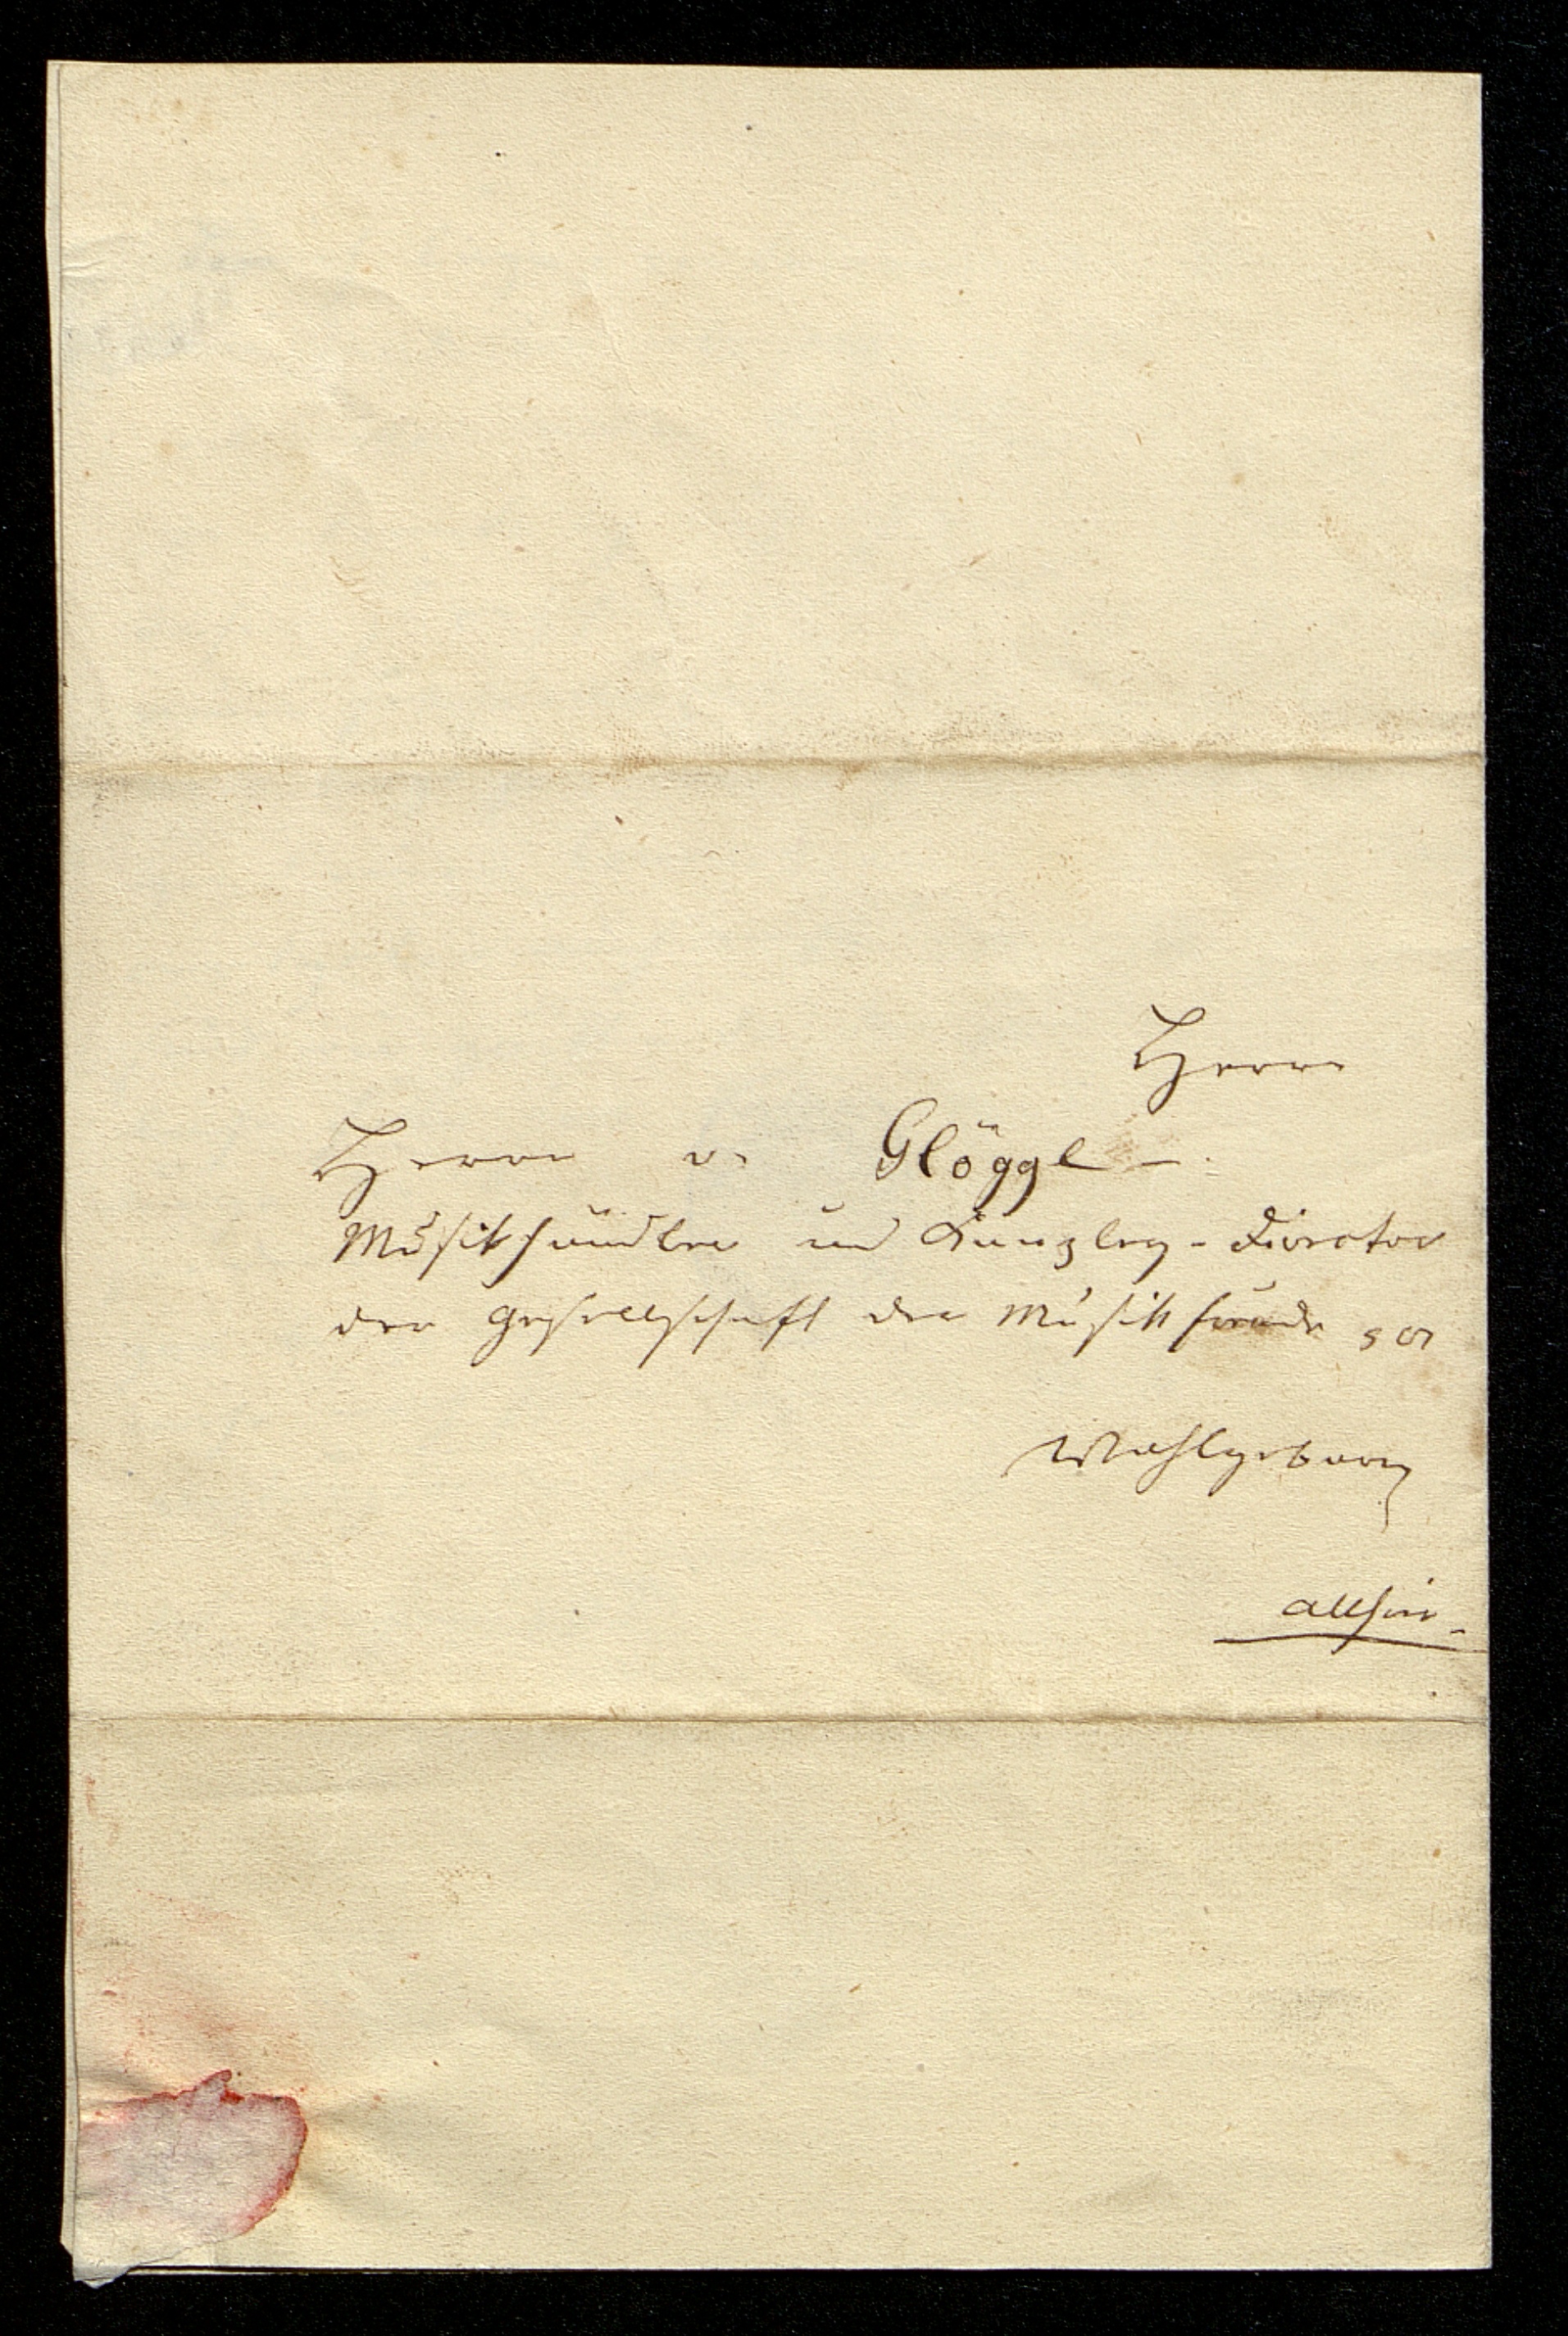 Herrn
Herrn v. Glöggl –
Musikhändler und Kanzley-Director
der Gesellschaft der Musikfreunde
Wohlgeboren
allhier.